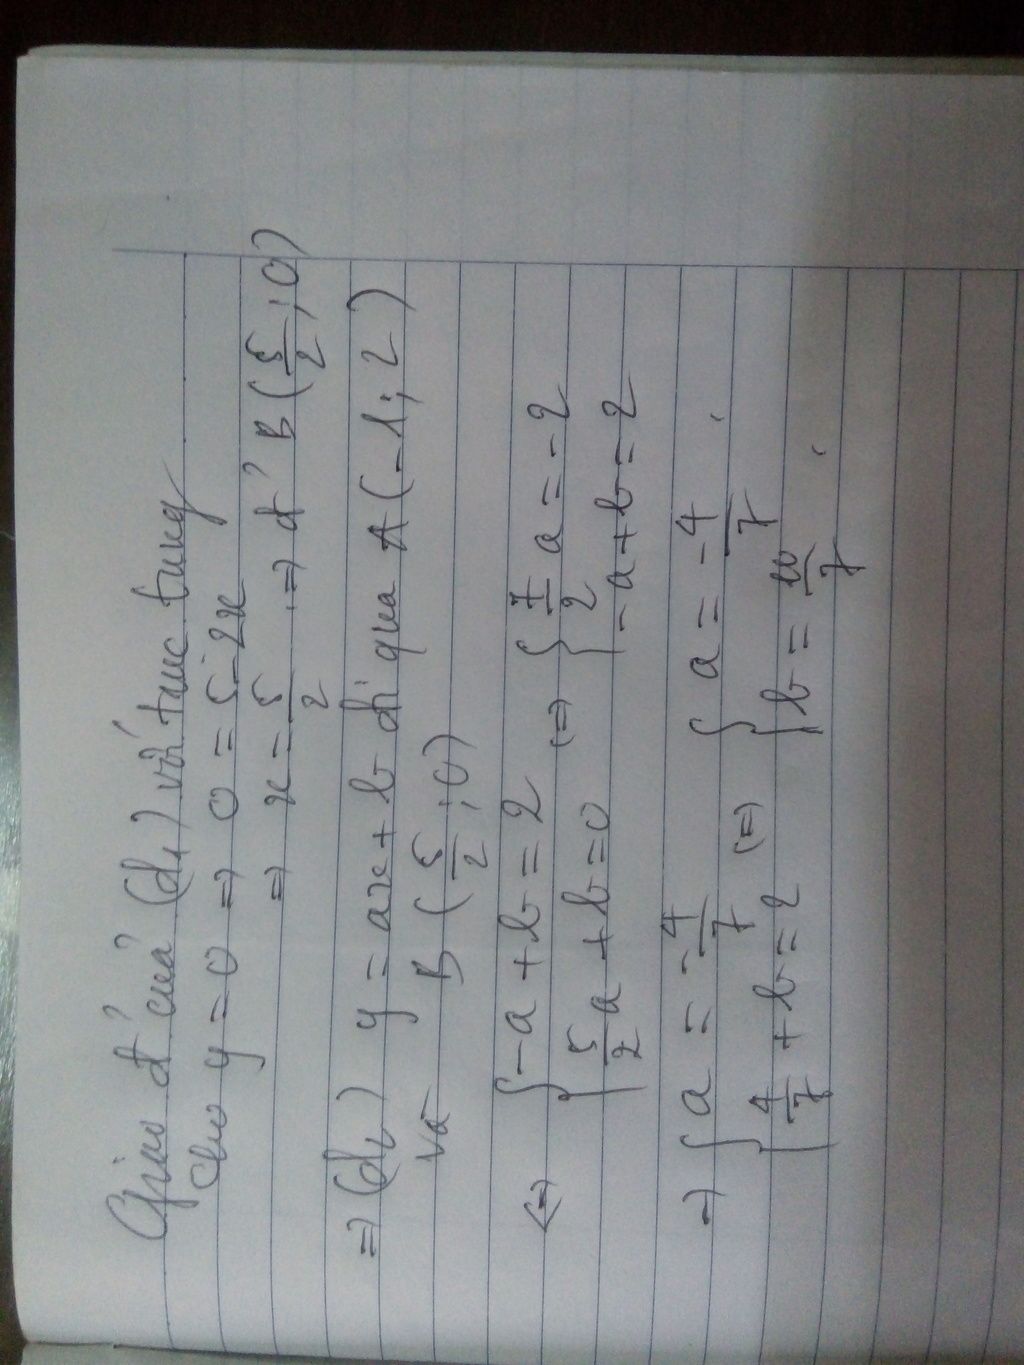 Giao đ' của (d₁) với trục tung
Cho y = 0 => 0 = 5 - 2x
=> x = 5/2 => đ' B (5/2 ; 0)
=> (d₂) y = ax + b đi qua A (-1; 2)
và B (5/2 ; 0)
<=> { -a + b = 2 (=) { 7/2 a = -2
{ 5/2 a + b = 0 { -a + b = 2
=> { a = -4/7 (=) { a = -4/7
{ 4/7 + b = 2 { b = 10/7